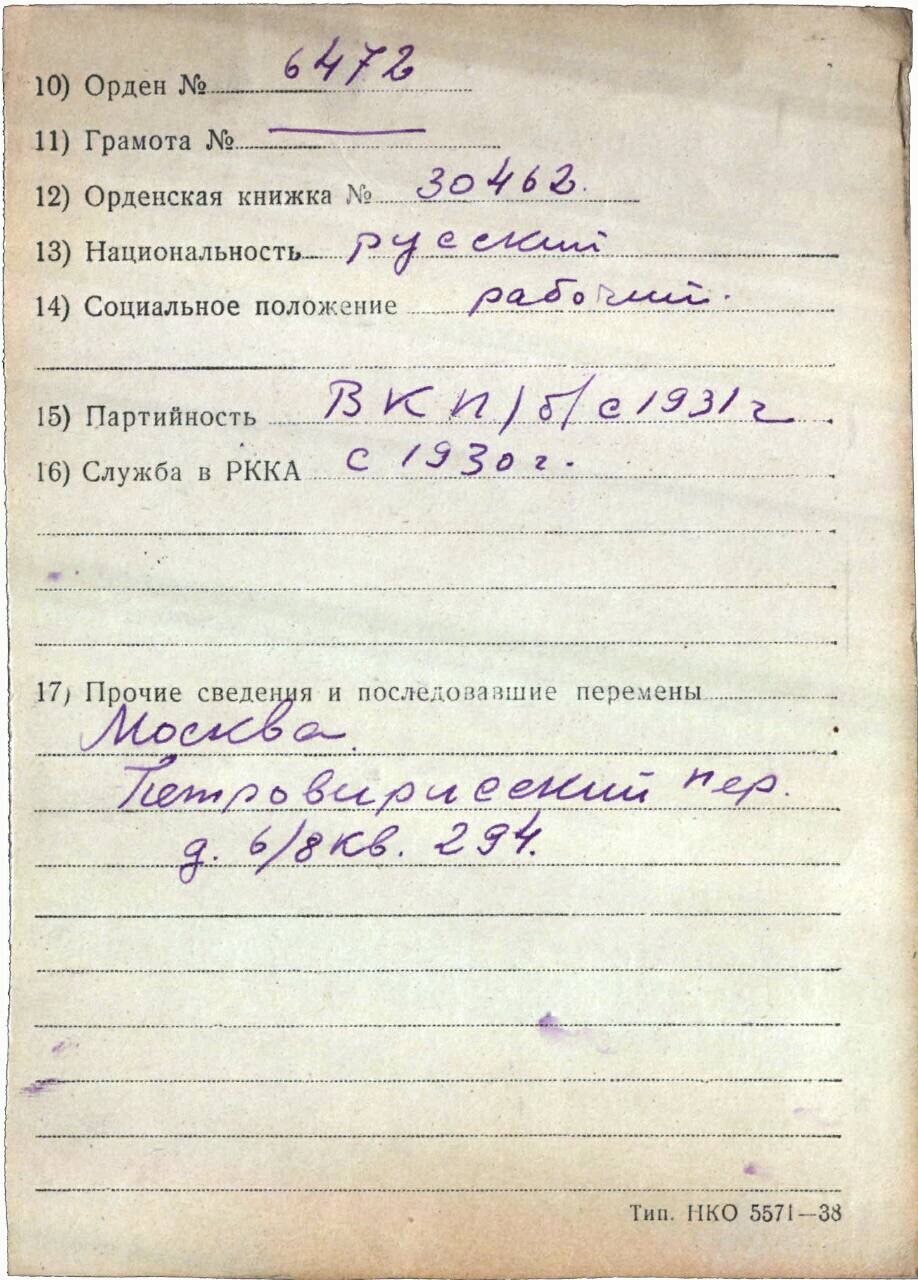 10) Орден № 6472
11) Грамота № —
12) Орденская книжка № 30462.
13) Национальность русский
14) Социальное положение рабочий.
15) Партийность ВКП/б/ с 1931 г
16) Служба в РККА с 1930 г.
17) Прочие сведения и последовавшие перемены
Москва.
Петроверигский пер.
д. 6/8 кв. 294.
Тип. НКО 5571—38